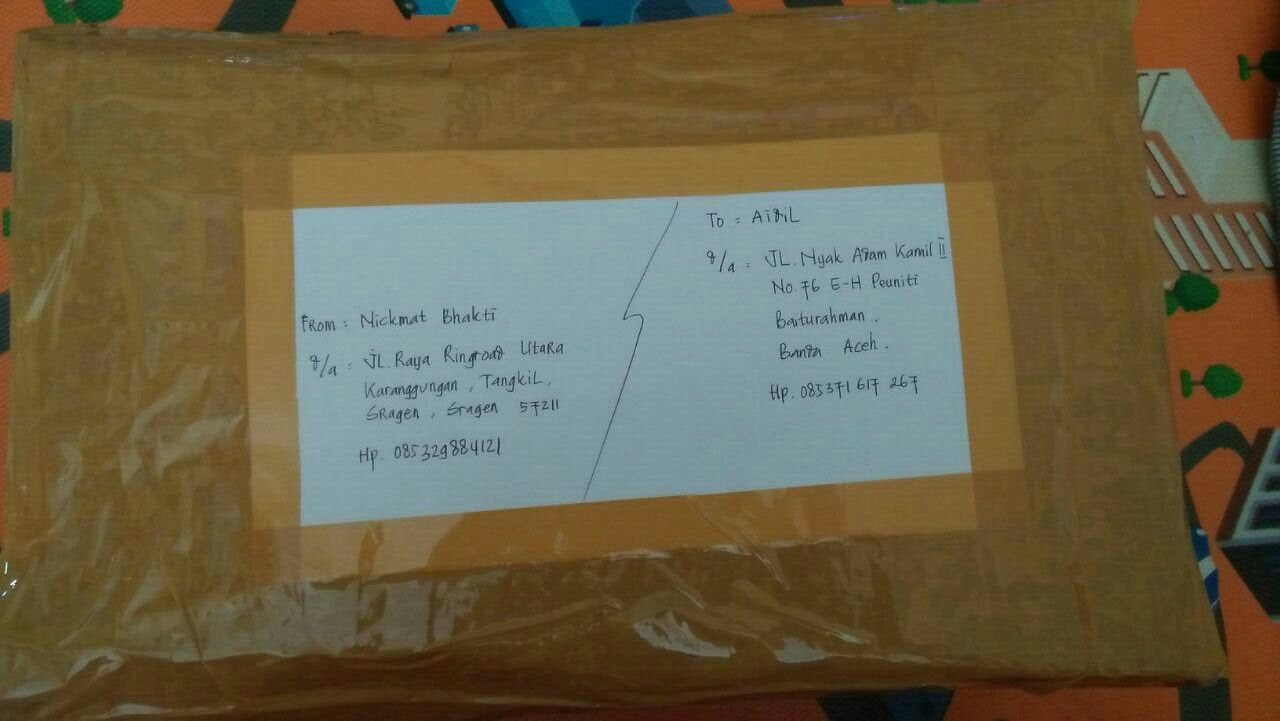 From : Nickmat Bhakti
d/a : JL. Raya Ringroad Utara
Karanggungan , Tangkil,
Sragen , Sragen 57211
Hp. 085329884121
To : Aidil
d/a : JL. Nyak Adam Kamil II
No. 76 E-H Peuniti
Baiturahman ,
Banda Aceh .
Hp. 085371 617 267